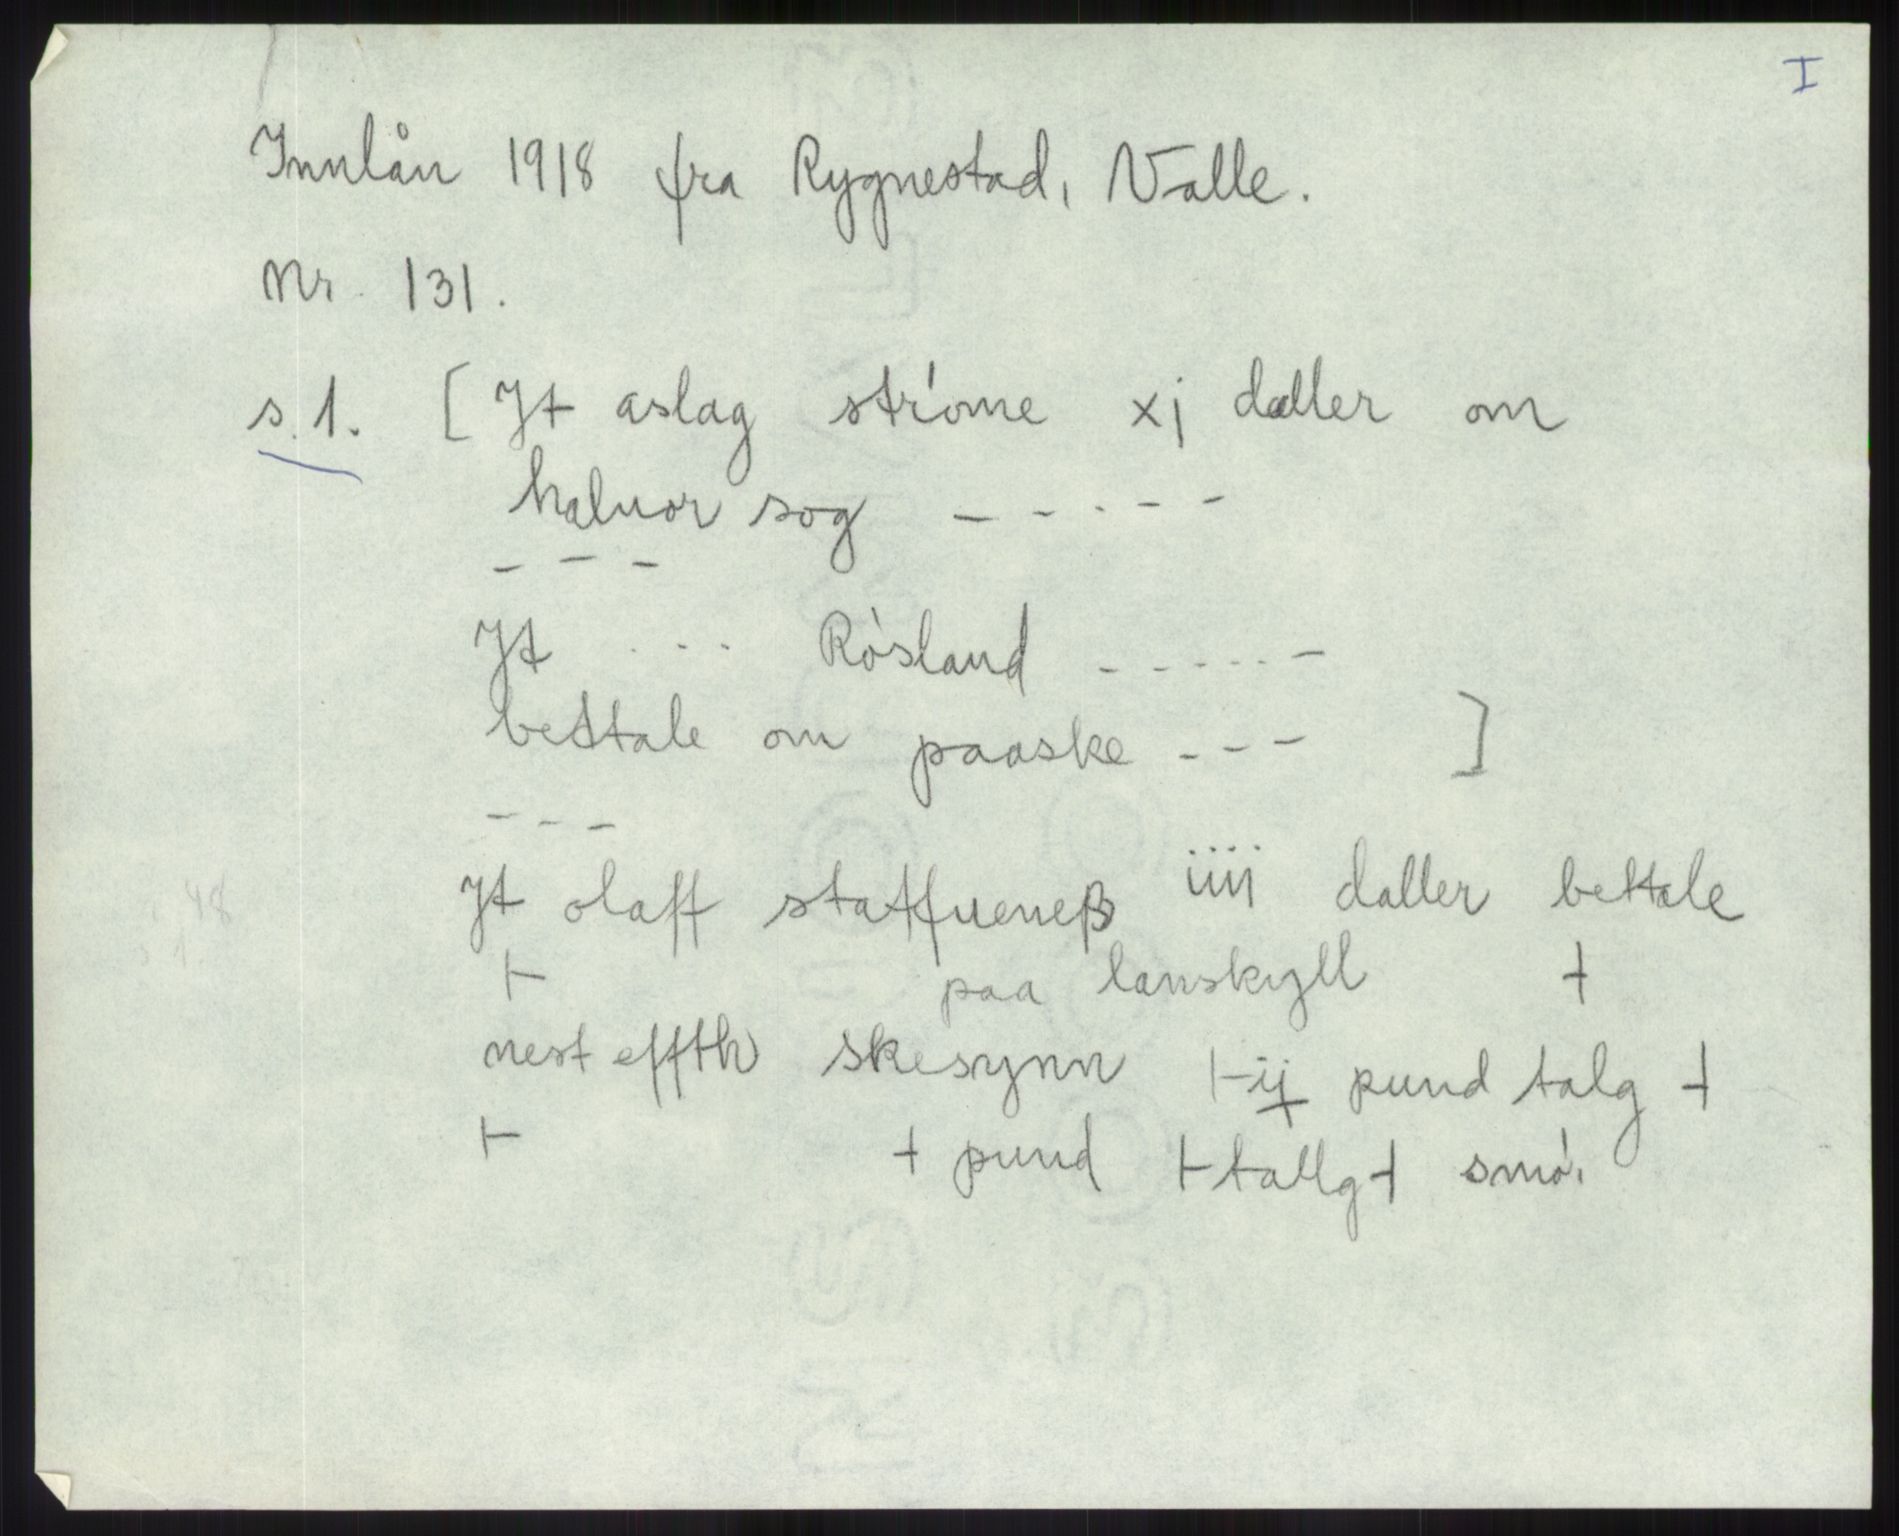 I
Innlån 1918 fra Rygnestad, Valle.
Nr. 131.
s. 1. [ Jt aslag stróme xj daller om
haluor sog - - - - -
- - -
Jt . . . Rósland - - - - - -
bettale om paaske - - - ]
- - -
Jt olaff statfueneß iiij daller bettale
⊢ paa lanskyll ⊣
nest effth skesynn ⊢ ij pund talg ⊣
⊢ ⊣ pund ⊢ tallg ⊣ smó.
48